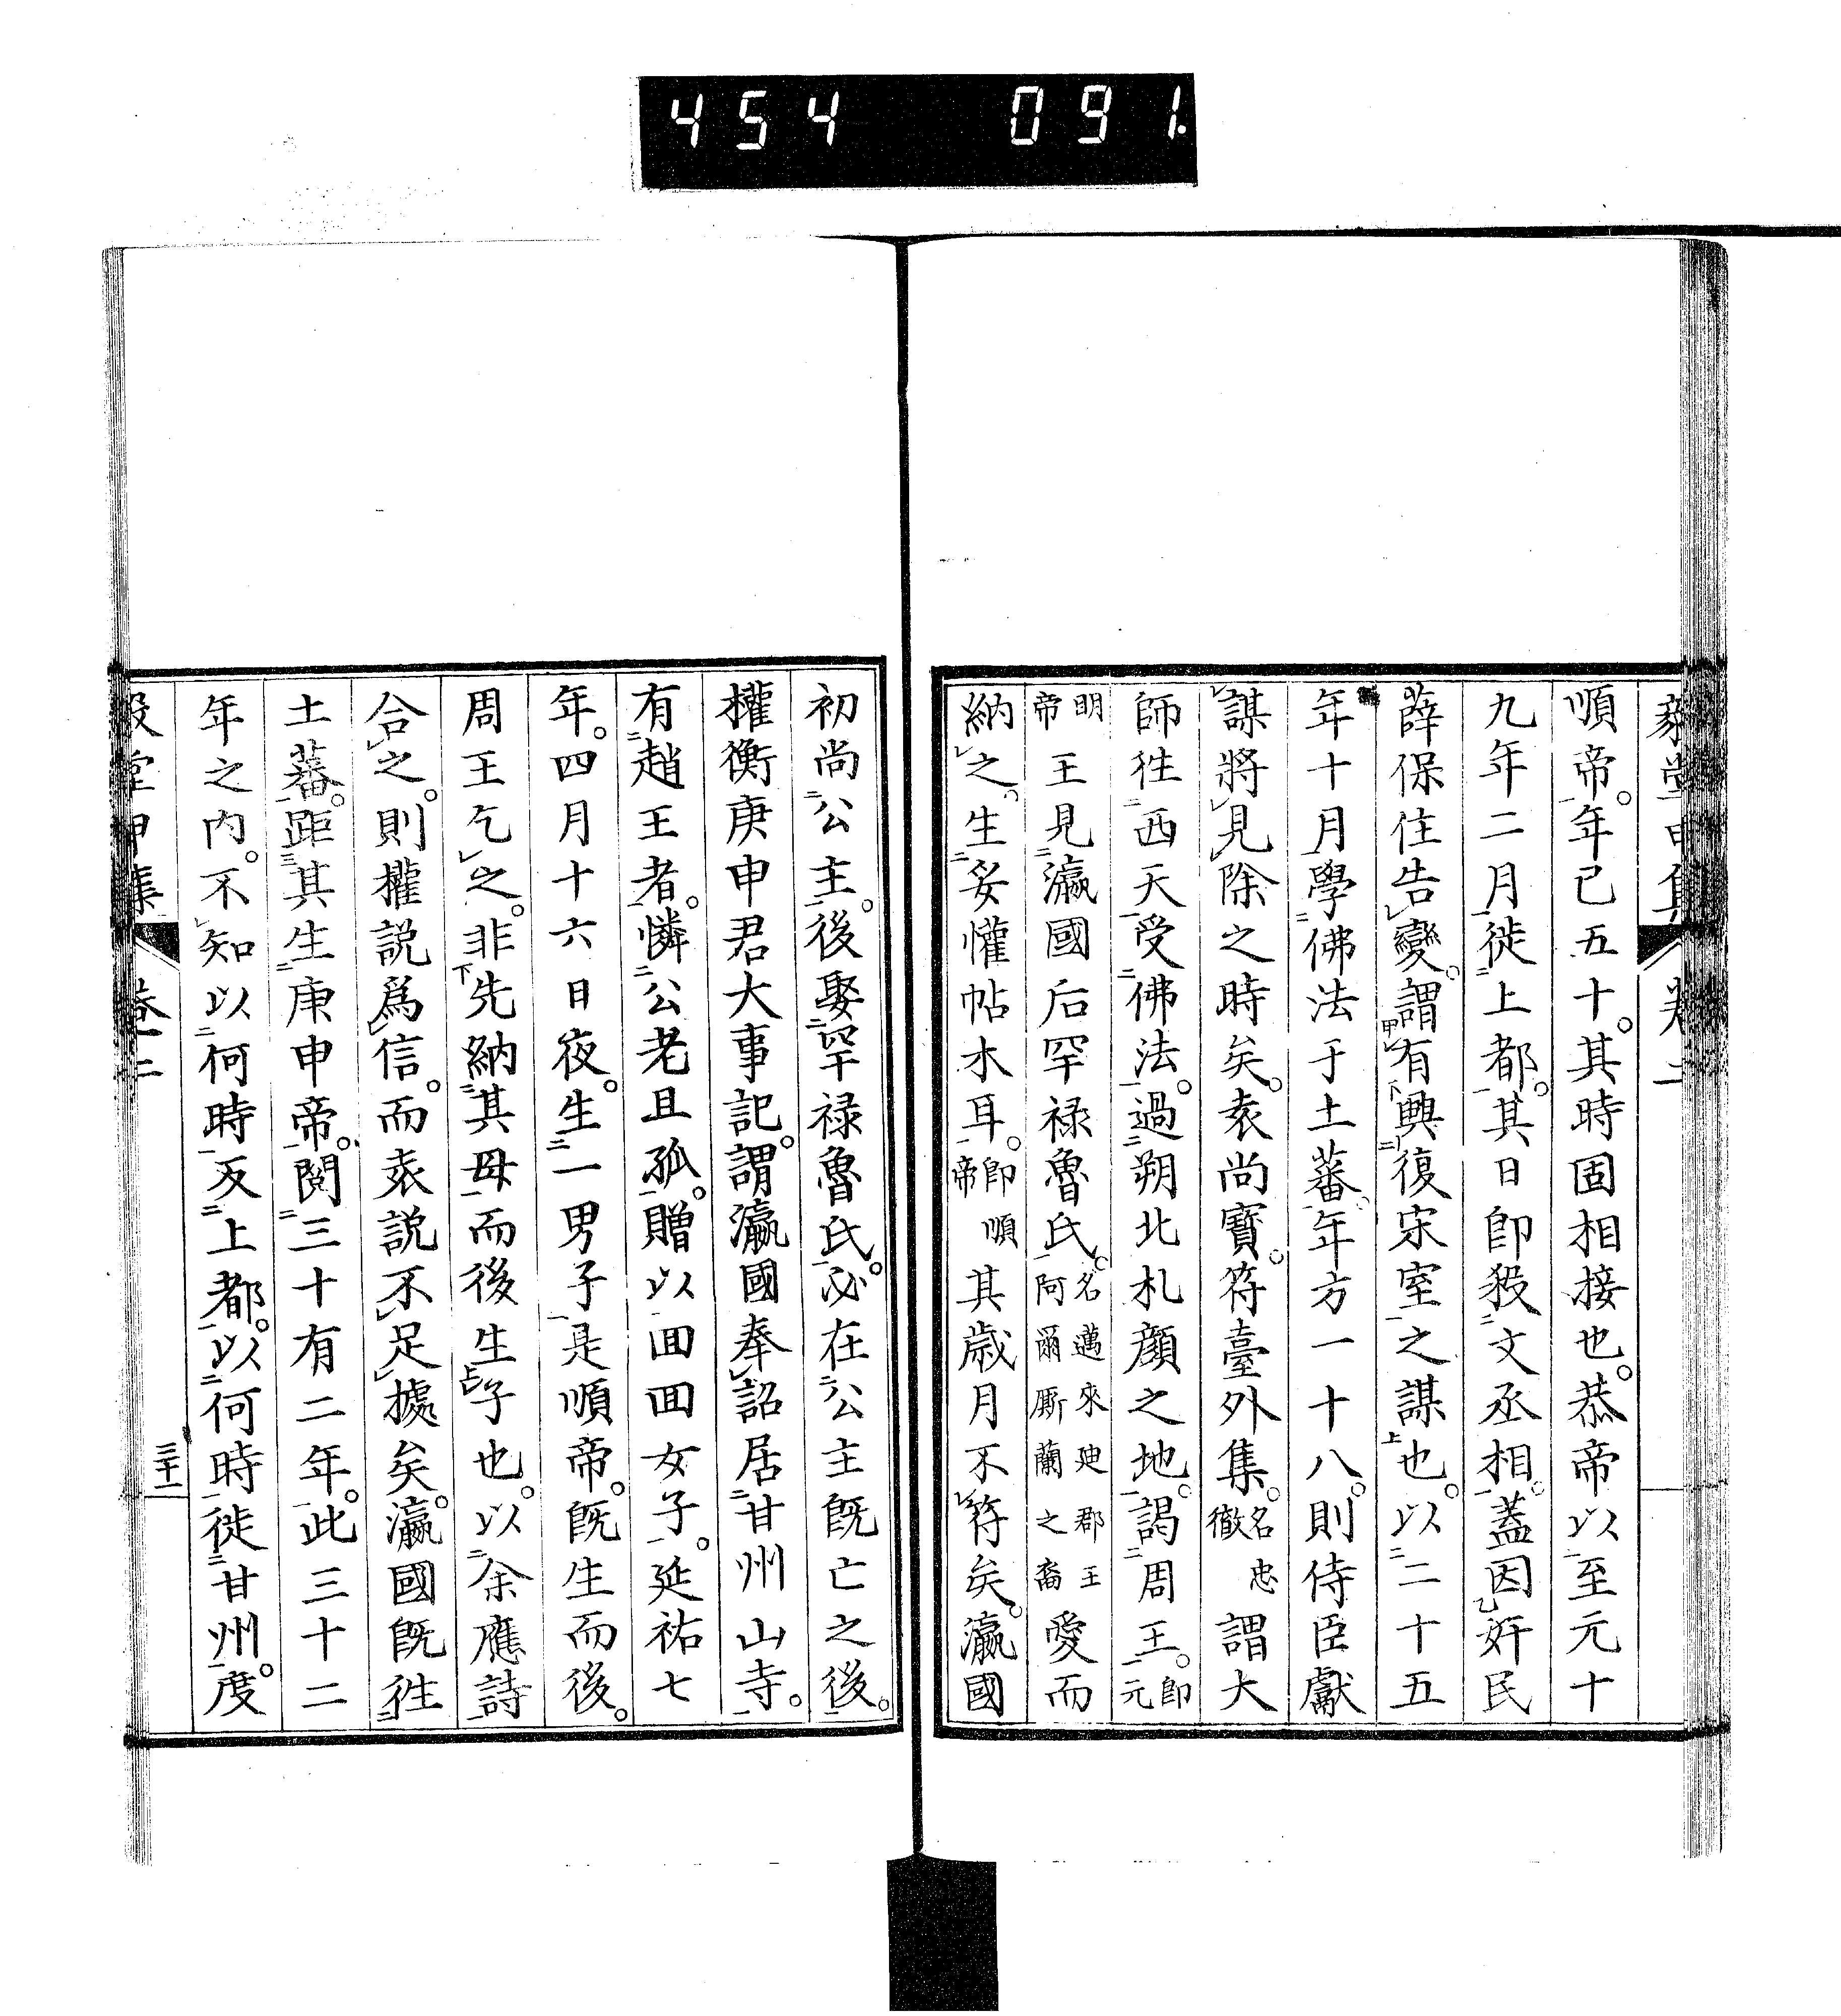 454 091.
順帝。年已五十。其時固相接也。恭帝以至元十
九年二月徙上都。其日即殺文丞相。蓋因奸民
薛保住告變。謂有興復宋室之謀也。以二十五
年十月學佛法于土蕃。年方一十八。則侍臣獻
謀將見除之時矣。袁尚寶。符臺外集。名忠徹謂大
師往西天受佛法。過朔北札顔之地。謁周王。即元
明帝王見瀛國后罕禄魯氏。名邁來廸郡王阿爾厮蘭之裔愛而
納之。生妥懽帖木耳。即順帝其歳月不符矣。瀛國
初尚公主。後娶罕禄魯氏。必在公主既亡之後。
權衡庚申君大事記。謂瀛國奉詔居甘州山寺。
有趙王者。憐公老且孤。贈以回回女子。延祐七
年。四月十六日夜。生一男子是順帝。既生而後。
周王乞之。非先納其母而後生子也。以余應詩
合之。則權説爲信。而袁説不足據矣。瀛國既往
土蕃。距其生庚申帝。閲三十有二年。此三十二
年之内。不知以何時反上都。以何時徙甘州。度
三十二